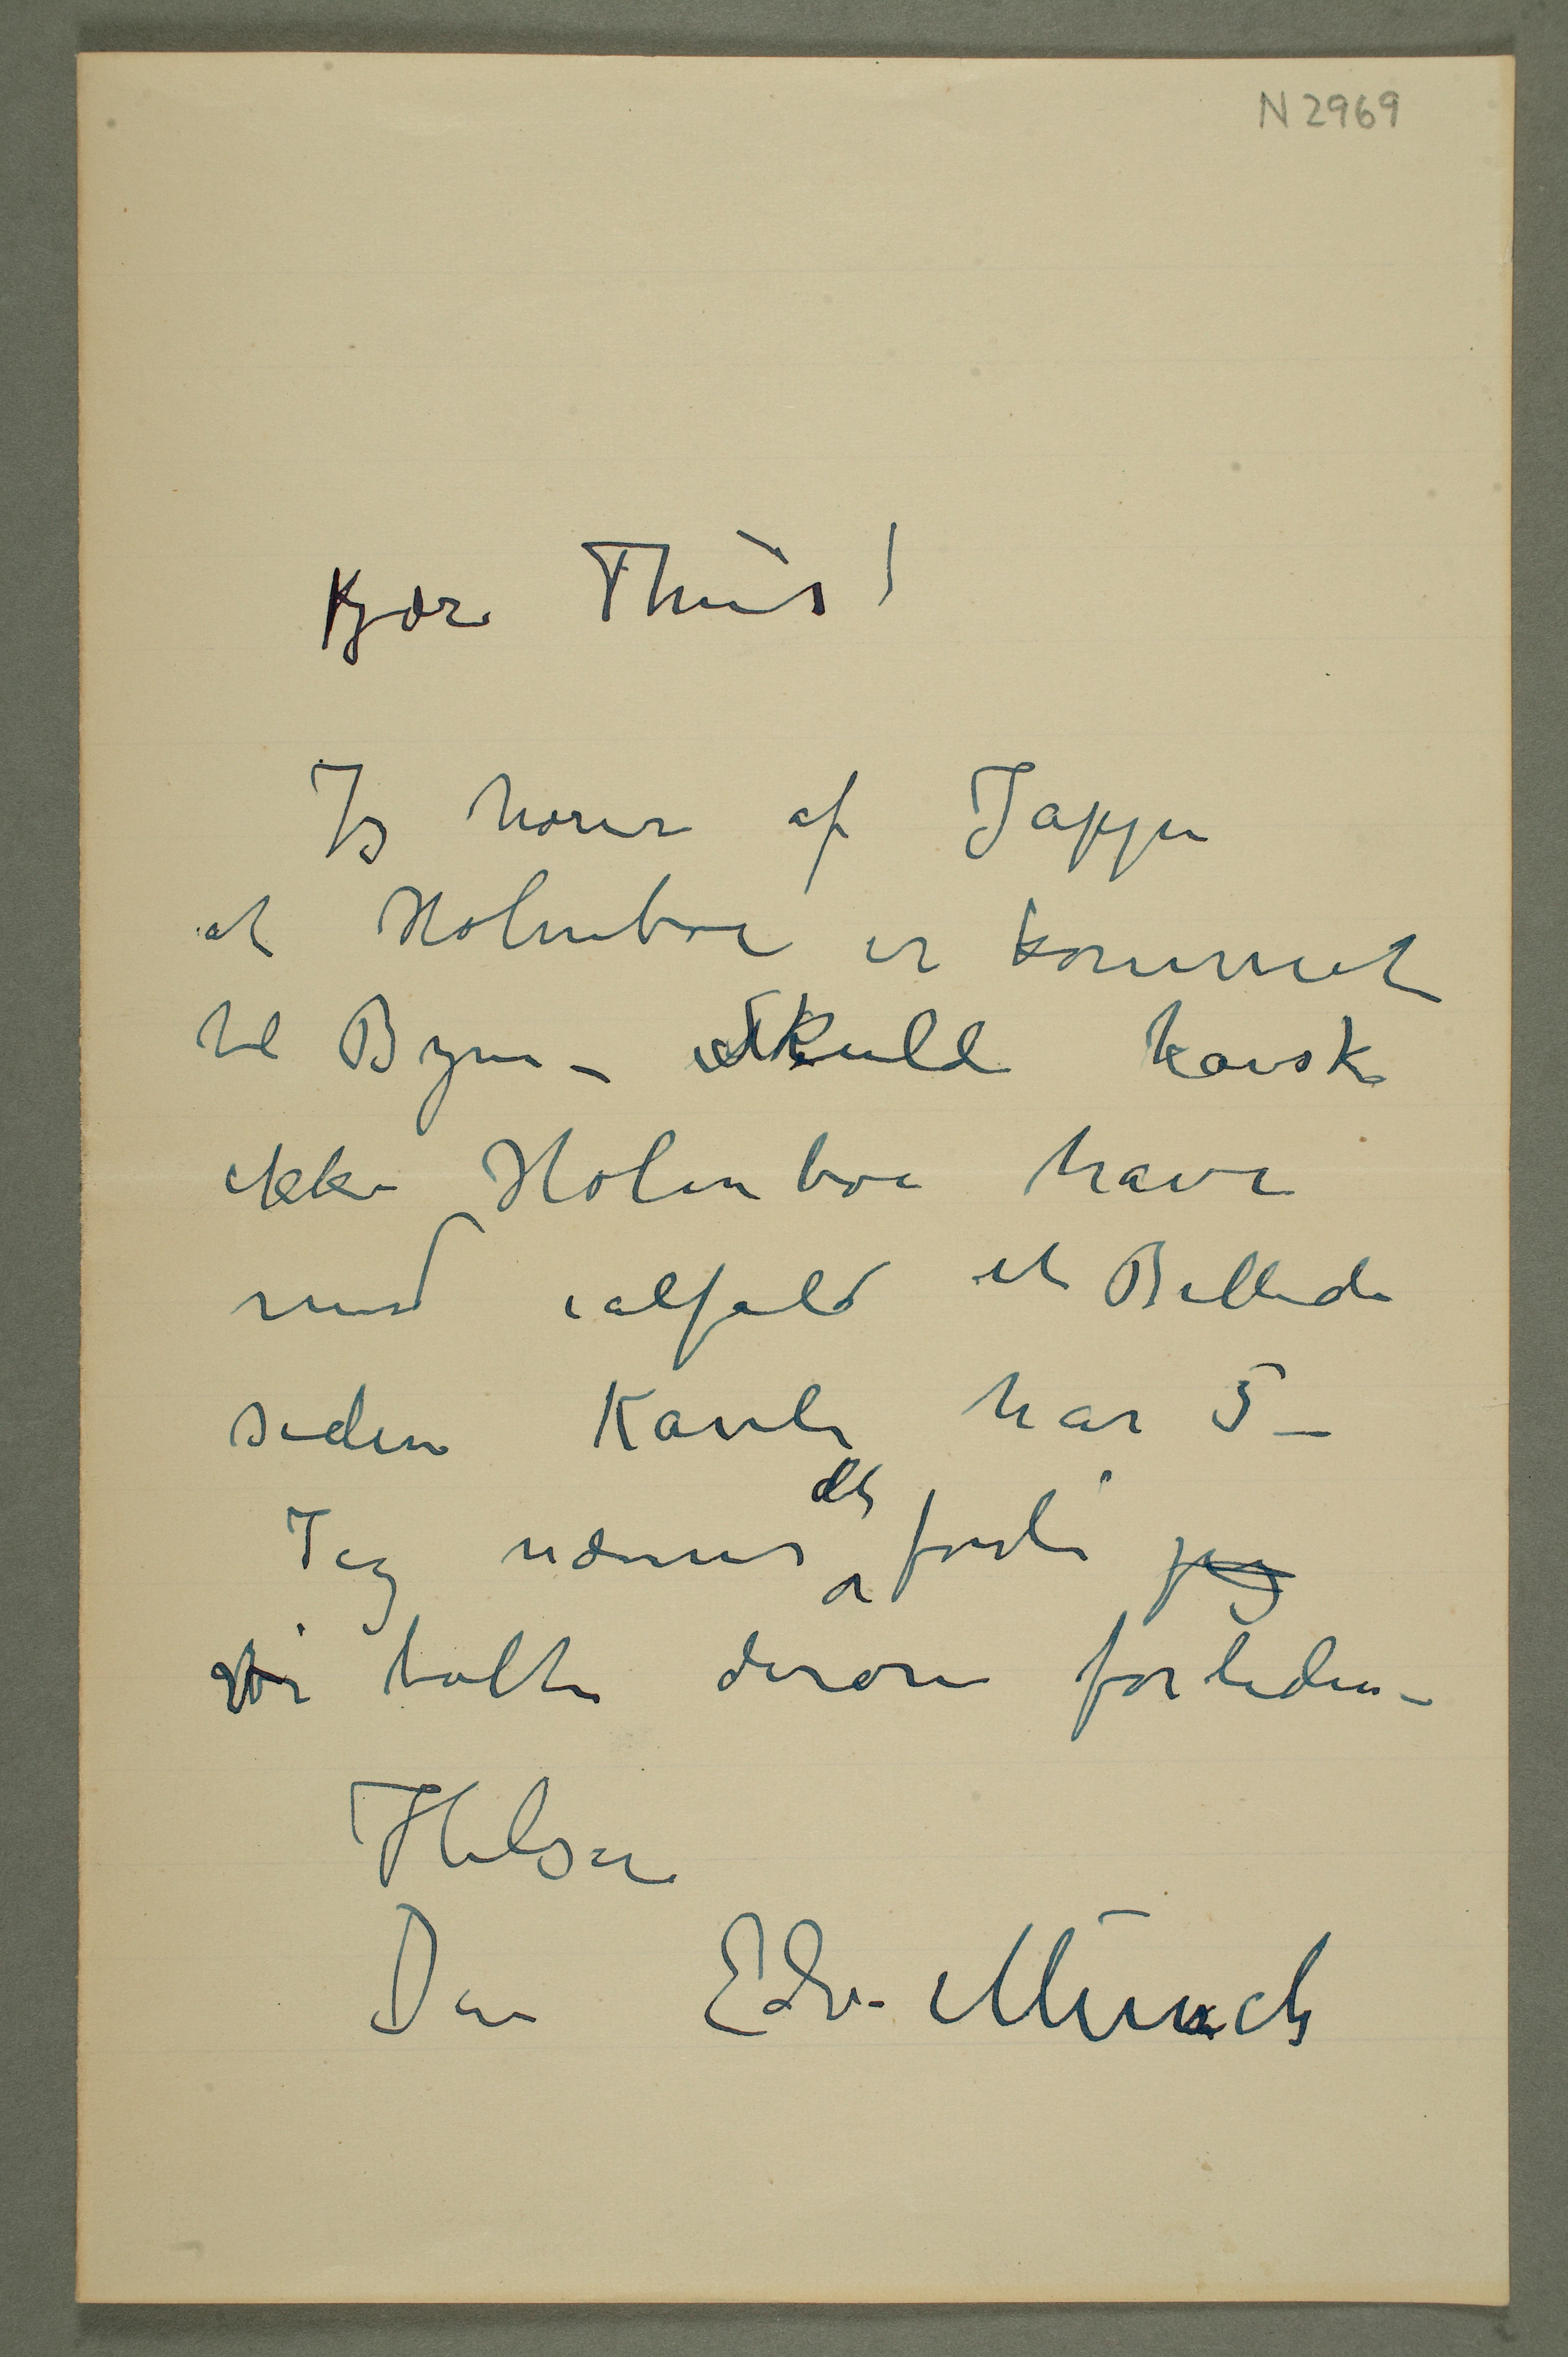 N 2969
Kjære Thiis!
Jeg hører af Jappe
at Holmboe er kommet
til Byen – Skulde kanske
ikke Holmboe have
med ialfald et Billede
siden Kavli har 5 –
Jeg nævner det fordi jeg
vi talte derom forleden –
Hilsen
Din Edv. Munch